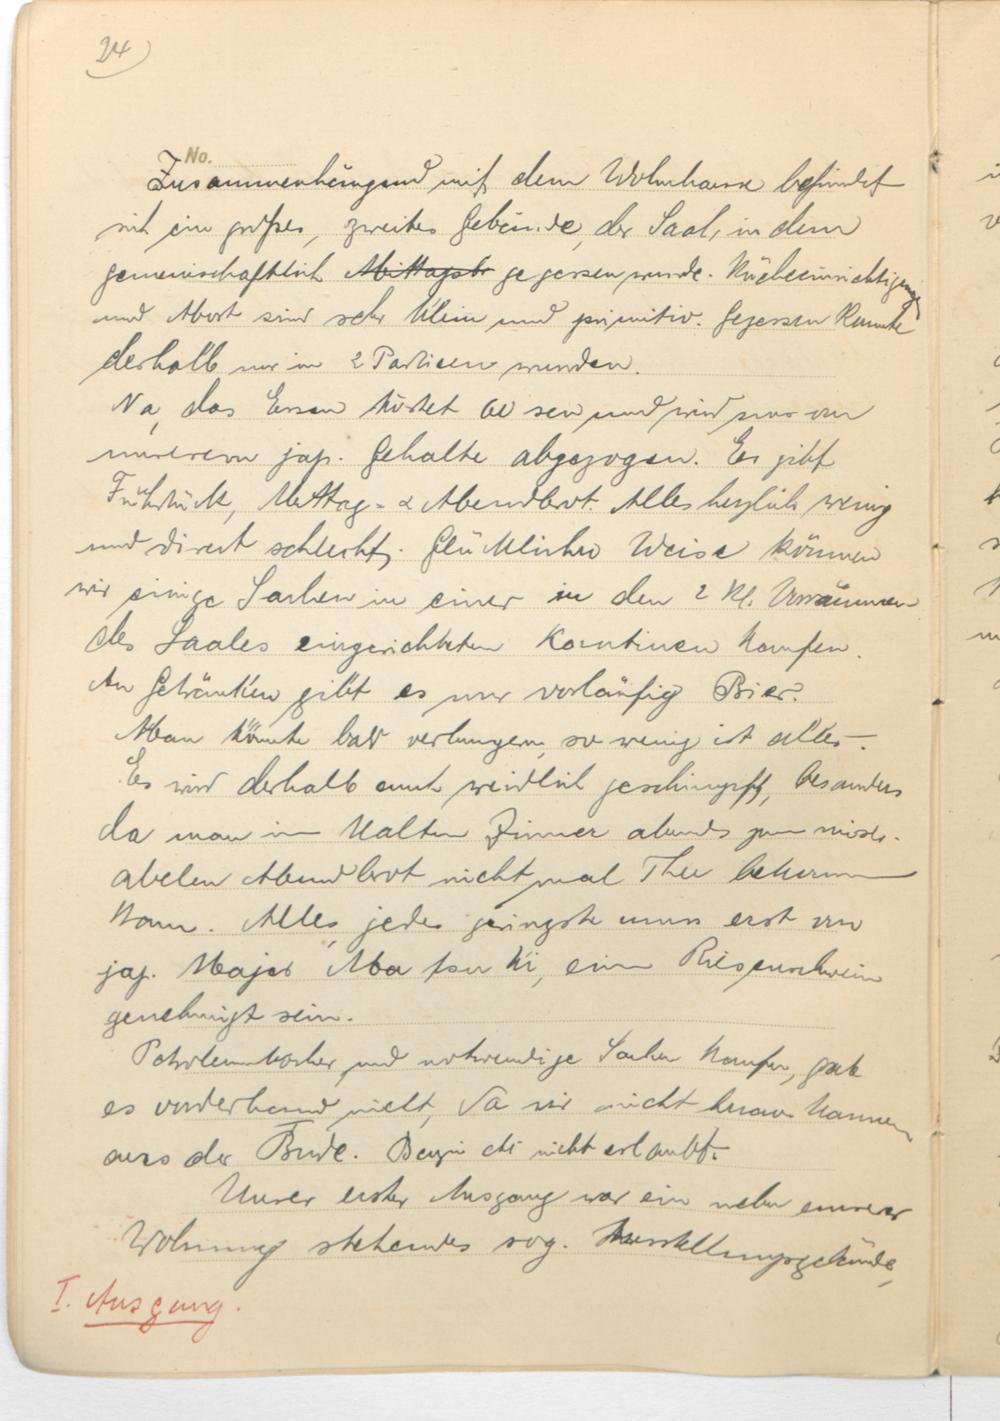 24
No.
Zusammenhängend mit dem Wohnhause befindet
sich ein großes, zweites Gebäude, der Saal, in dem
gemeinschaftlich Mittagsbr gegessen wurde. Kücheeinrichtigungen
und Abort sind sehr klein und primitiv. Gegessen konnte
deshalb nur in 2 Partieen werden.
Na, das Essen kostet 60 sen und wird uns von
unserem jap. Gehalte abgezogen. Es gibt
Frühstück, Mittag- & Abendbrot. Alles herzlich wenig
und direct schlecht. Glücklicher Weise können
wir einige Sachen in einer in den 2 kl. Vorräumen
des Saales eingerichteten Kantinen kaufen.
An Getränken gibt es nur vorläufig Bier.
Man könnte bald verhungern, so wenig ist alles.
Es wird deshalb auch weidlich geschimpft, besonders
da man im kalten Zimmer abends zum miser-
abelen Abendbrot nicht mal Thee bekommen
kann. Alles, jedes geringste muss erst vom
jap. Major, ein Riesenschwein
genehmigt sein.
Petroleumkocher und notwendige Sachen kaufen, gab
es vorderhand nicht, da wir nicht heraus kamen
aus der Bude. Benzin etc nicht erlaubt.
Unser erster Ausgang war ein neben unserer
Wohnung stehendes sog. Ausstellungsgebäude,
I. Ausgang.